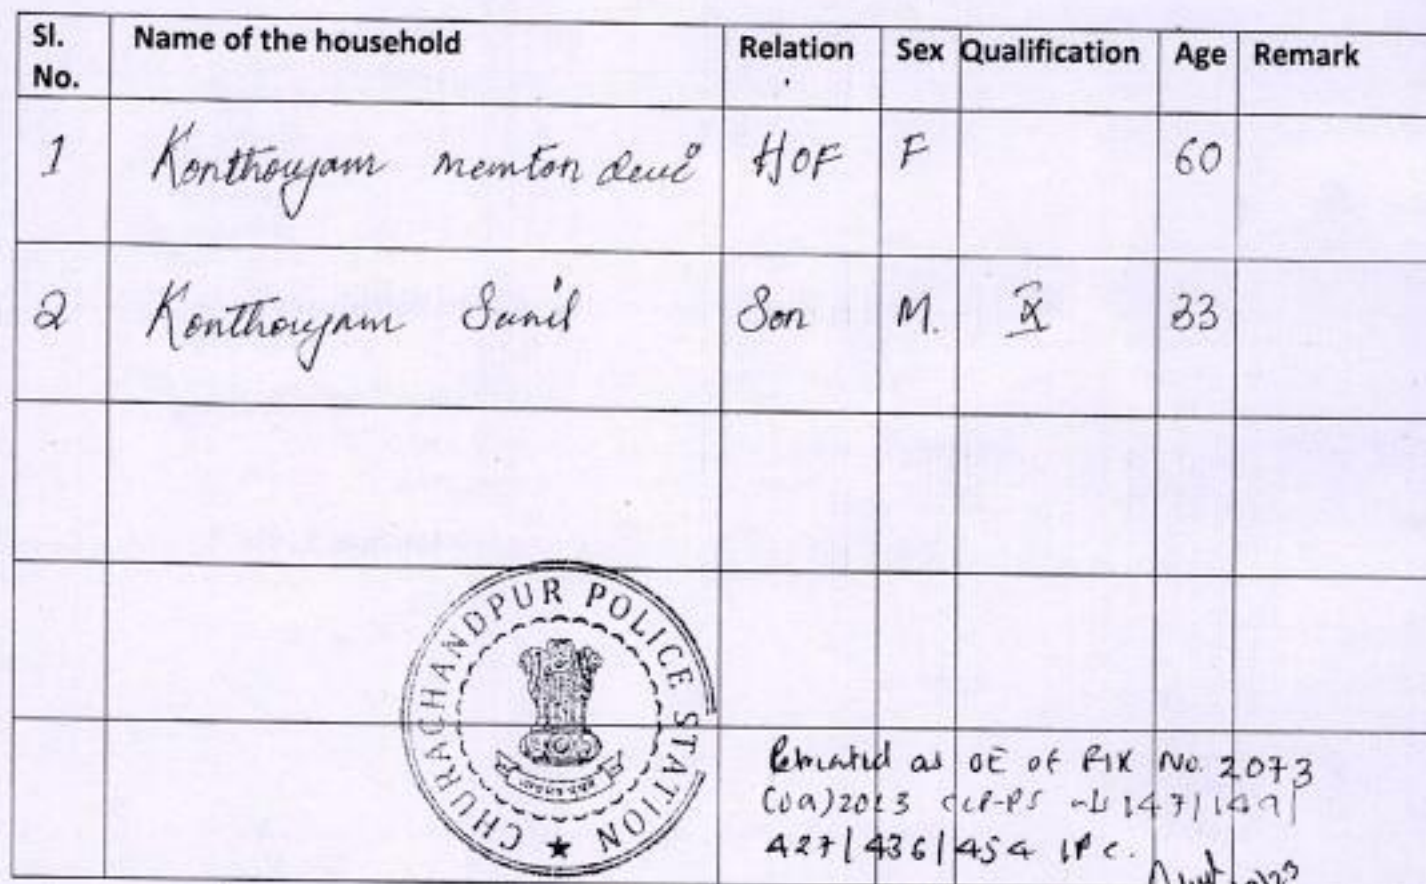 Sl. No. Name of the household Relation Sex Qualification Age Remark
1 Konthoujam memton devi HOF F 60
2 Konthoujam Sunil Son M. IX 33
CHURACHANDPUR POLICE STATION
as OE of FIR No. 2073
2023 CCP-PS 147/149/
427/436/454 IPC.